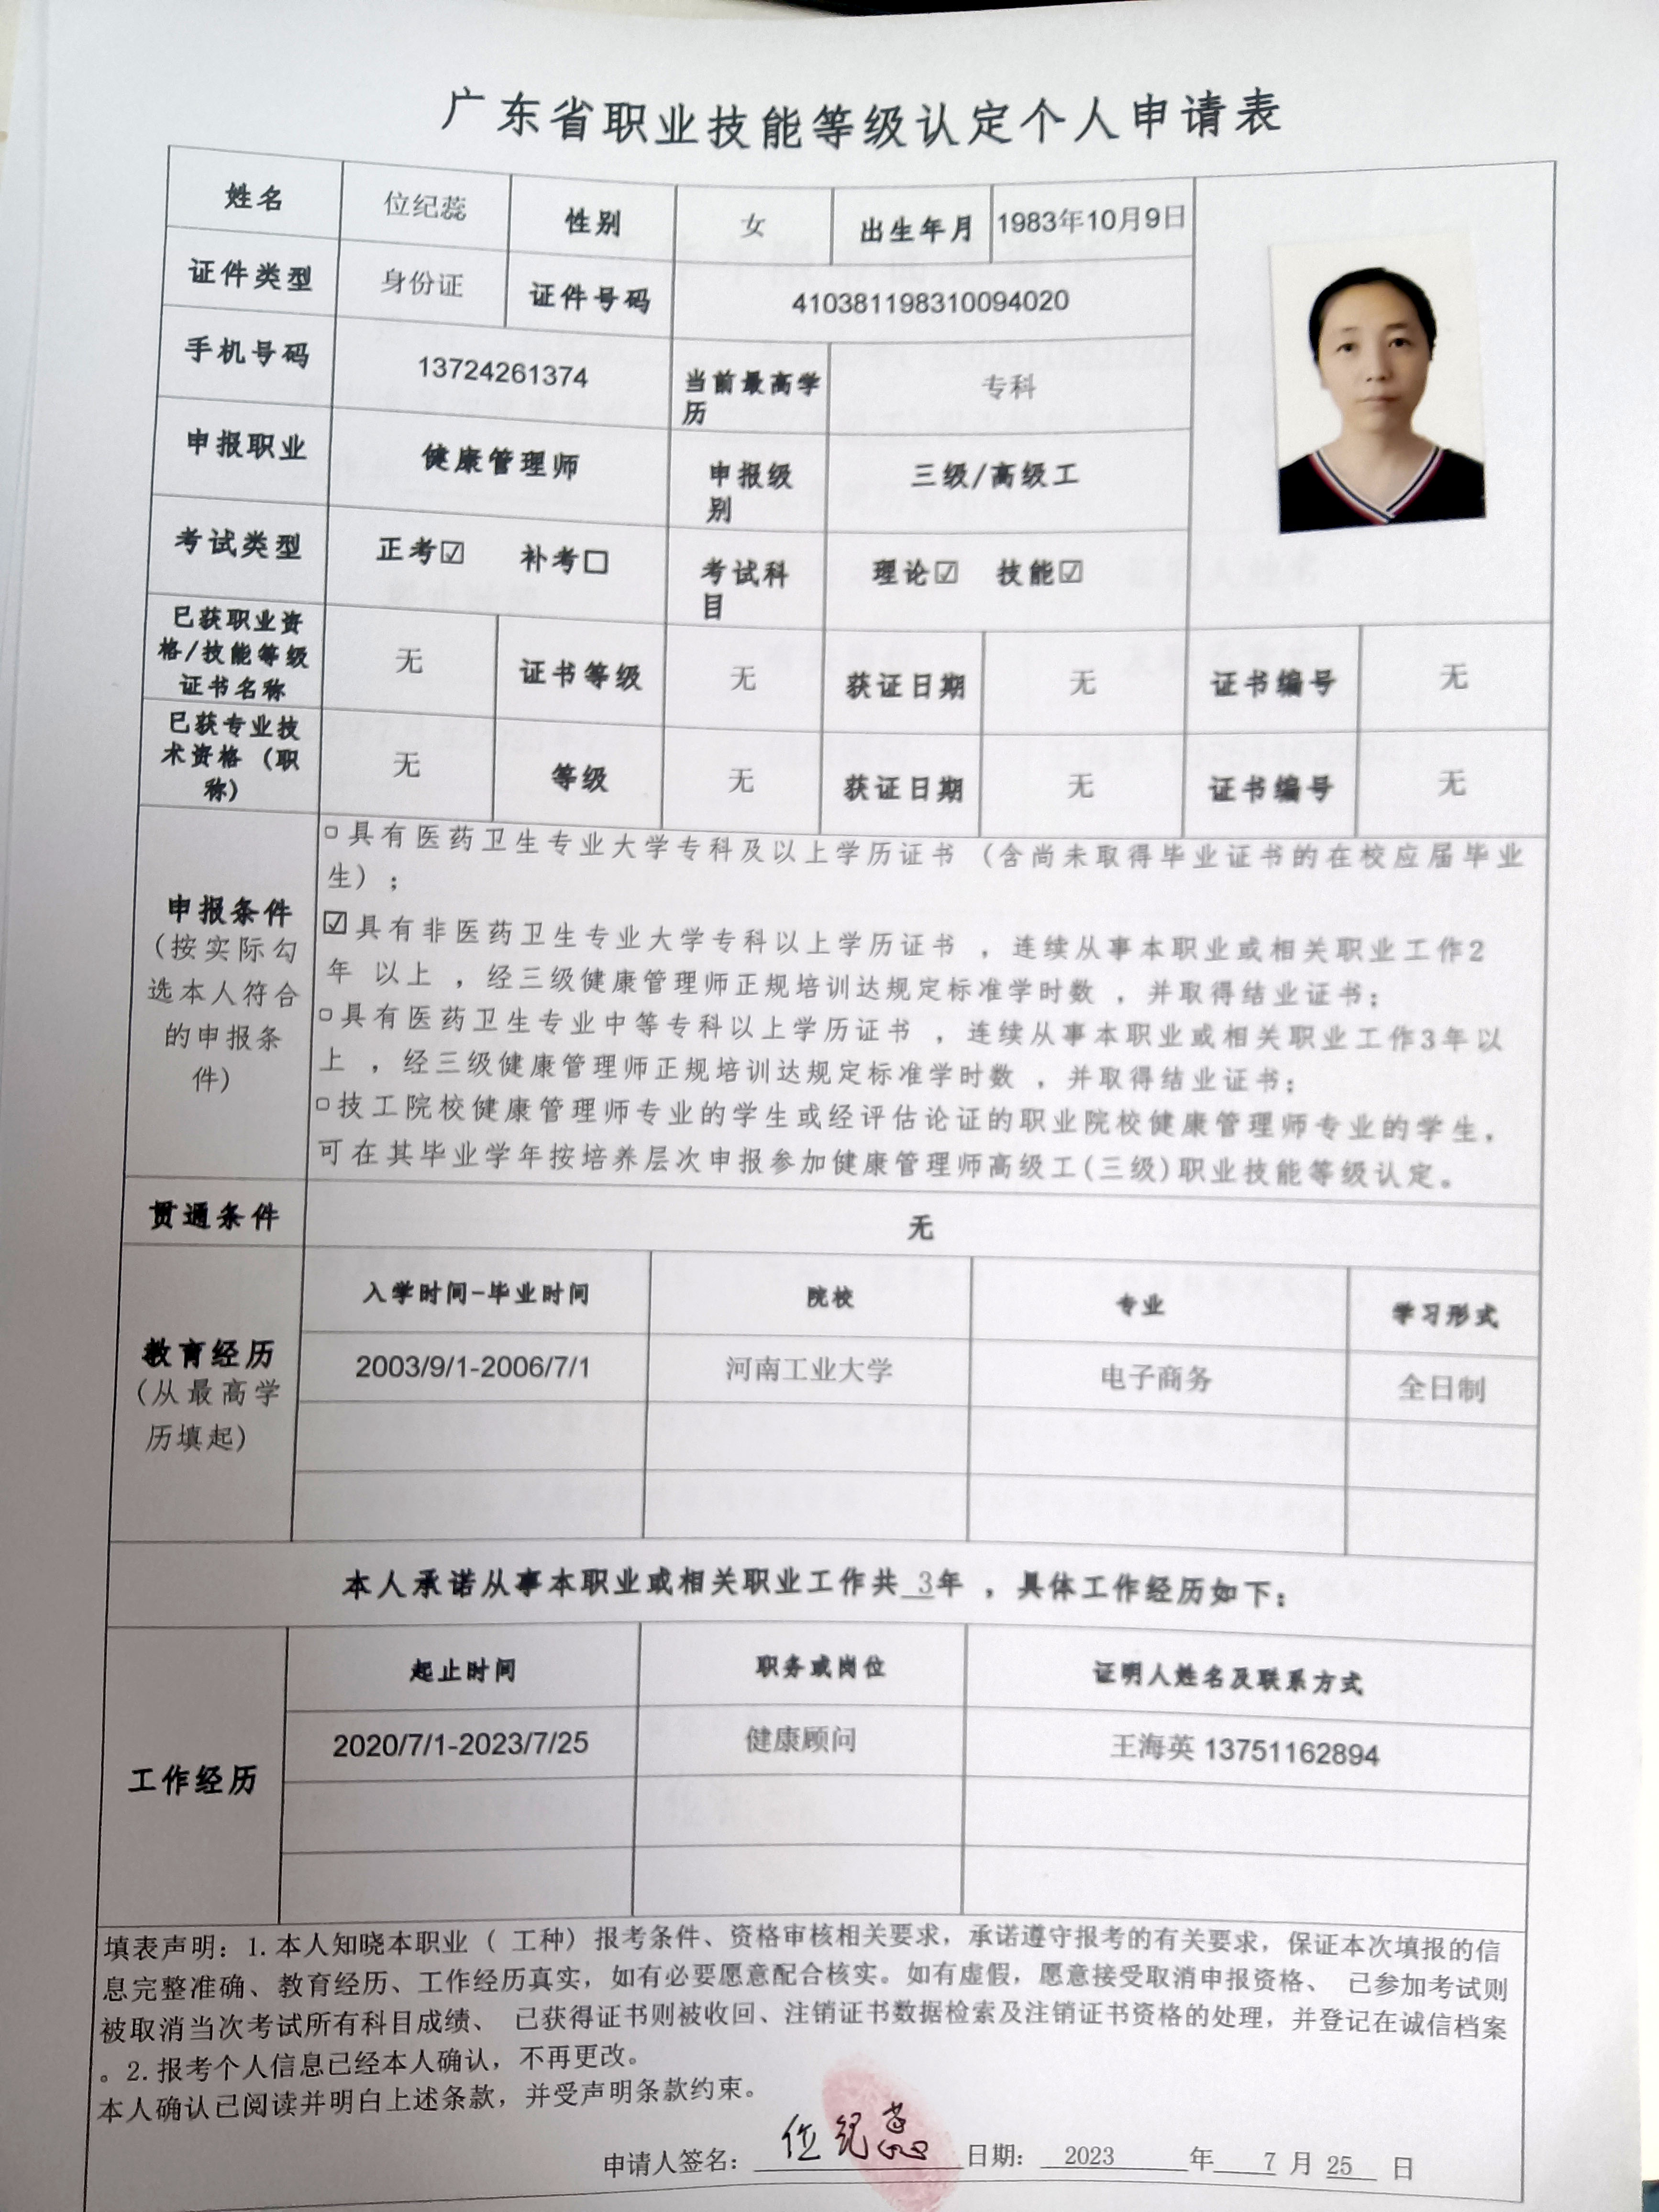 广东省职业技能等级认定个人申请表
姓名 位纪蕊 性别 女 出生年月 1983年10月9日
证件类型 身份证 证件号码 410381198310094020
手机号码 13724261374 当前最高学
历 专科
申报职业 健康管理师 申报级
别 三级/高级工
考试类型 正考☑ 补考☐ 考试科
目 理论☑ 技能☑
已获职业资
格/技能等级
证书名称 无 证书等级 无 获证日期 无 证书编号 无
已获专业技
术资格（职
称） 无 等级 无 获证日期 无 证书编号 无
申报条件
（按实际勾
选本人符合
的申报条
件）
□具有医药卫生专业大学专科及以上学历证书（含尚未取得毕业证书的在校应届毕业
生）；
☑具有非医药卫生专业大学专科以上学历证书，连续从事本职业或相关职业工作2
年 以上，经三级健康管理师正规培训达规定标准学时数，并取得结业证书；
□具有医药卫生专业中等专科以上学历证书，连续从事本职业或相关职业工作3年以
上，经三级健康管理师正规培训达规定标准学时数，并取得结业证书；
□技工院校健康管理师专业的学生或经评估论证的职业院校健康管理师专业的学生，
可在其毕业学年按培养层次申报参加健康管理师高级工(三级)职业技能等级认定。
贯通条件 无
教育经历
（从最高学
历填起）
入学时间-毕业时间 院校 专业 学习形式
2003/9/1-2006/7/1 河南工业大学 电子商务 全日制
本人承诺从事本职业或相关职业工作共 3年 ，具体工作经历如下：
工作经历
起止时间 职务或岗位 证明人姓名及联系方式
2020/7/1-2023/7/25 健康顾问 王海英 13751162894
填表声明：1.本人知晓本职业（ 工种）报考条件、资格审核相关要求，承诺遵守报考的有关要求，保证本次填报的信
息完整准确、教育经历、工作经历真实，如有必要愿意配合核实。如有虚假，愿意接受取消申报资格、 已参加考试则
被取消当次考试所有科目成绩、 已获得证书则被收回、注销证书数据检索及注销证书资格的处理，并登记在诚信档案
。2.报考个人信息已经本人确认，不再更改。
本人确认已阅读并明白上述条款，并受声明条款约束。
申请人签名： 位纪蕊 日期： 2023 年 7 月 25 日